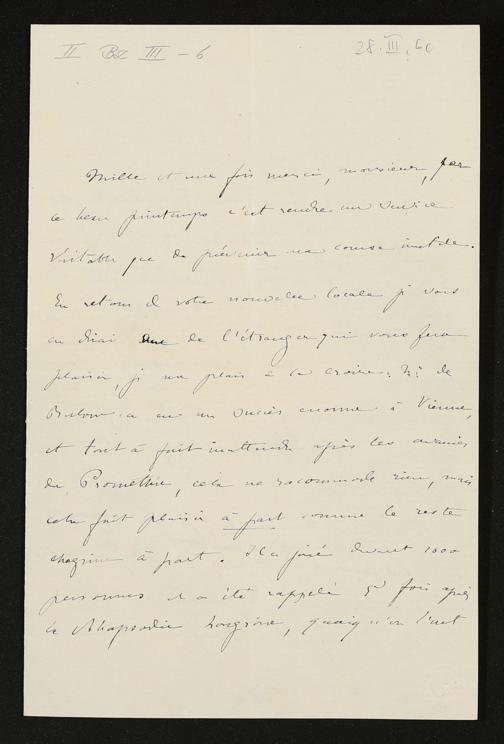 II Bz III - 6
28. III. 60
Mille et une fois merci, monsieur, par
ce beau printemps c'est rendre un service
véritable que de prévenir une course inutile.
En retour de votre nouvelle locale je vous
en dirai une de l'étranger qui vous fera
plaisir, je me plais à le croire: Mr de
Bulow a eu un succès enorme à Vienne,
et tout à fait inattendu après les avanies
du Promethée, cela ne racommode rien, mais
cela fait plaisir à part comme le reste
chagrine à part. Il a joué devant 1000
personnes et a été rappelé 5 fois après
la Rhapsodie hongroise, quoiqu'on l'eut